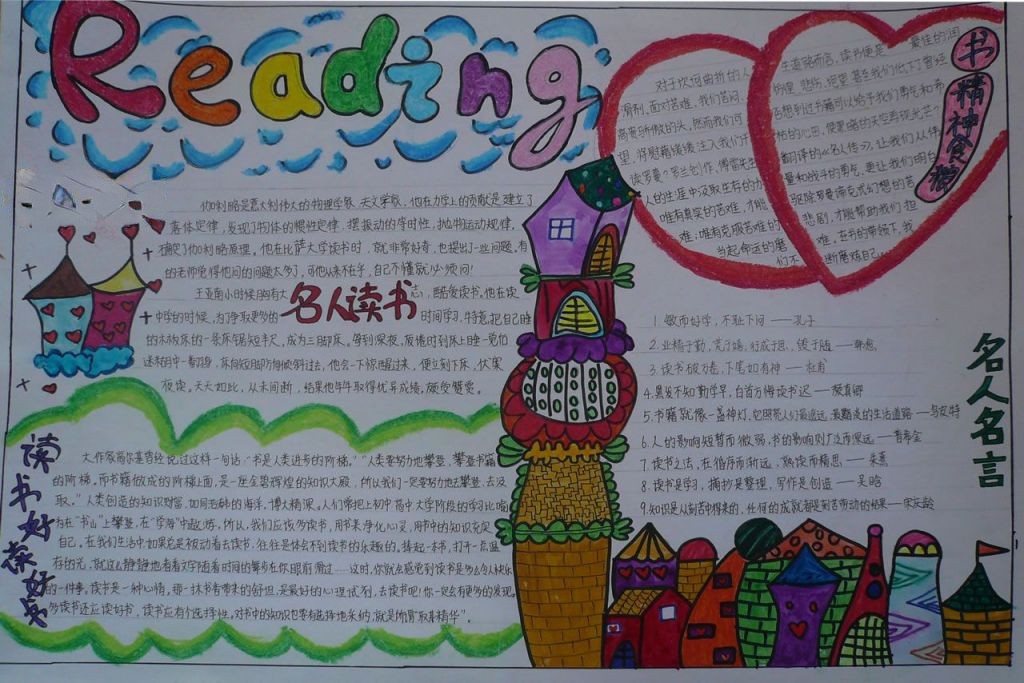 Reading
伽利略是意大利伟大的物理学家、天文学家，他在力学上的贡献是建立了
落体定律，发现了物体的惯性定律、摆振动的等时性，抛物运动规律，
确定了伽利略原理。他在比萨大学读书时，就非常好奇，也提出一些问题，有
的老师觉得他问的问题太多了，可他从来不在乎，自己不懂就必须问！
名人读书
王亚南小时候胸有大志，酷爱读书，他在读
中学的时候，为争取更多的时间学习，特意把自己睡
的木板床的一条脚锯短半尺，成为三脚床。每到深夜，疲倦时到床上睡一觉后
迷糊中一翻身，床向短脚方向倾斜过去，他会一下惊醒过来，便立刻下床，伏案
夜读。天天如此，从未间断，结果他年年取得优异成绩，颇受赞爱。
读书好 读好书
大作家高尔基曾经说过这样一句话："书是人类进步的阶梯。""人类要努力地攀登，攀登书籍
的阶梯，而书籍做成的阶梯上面，是一座金碧辉煌的知识大殿，所以我们一定要努力地去攀登，去汲
取。"人类创造的知识财富，如同浩瀚的海洋，博大精深。人们常把上初中高中大学阶段的学习比喻
为在"书山"上攀登，在"学海"中遨游，所以，我们应该多读书，用书来净化心灵，用书中的知识充实
自己。在我们生活中如果总是被动着去读书，往往是体会不到读书的乐趣的。捧起一本书，打开一盏温
存的光，就这么静静地看着文字随着时间的繁多在你眼前滑过……这时，你就会感觉到读书是多么令人快乐
的一件事。读书是一种心情，那一抹书香带来的舒坦，是最好的心理试剂，去读书吧！你一定会有更多的发现。
多读书还应读好书，读书应有个选择性。对书中的知识也要有选择地采纳，就是所谓"取其精华"。
书 精神食粮
对于坎坷曲折的人
生道路而言，读书便是 最佳的润
滑剂，面对苦难，我们苦闷、
彷徨、悲伤、绝望，甚至我们低下了曾经
高贵骄傲的头，然而我们可
否想到过书籍可以给予我们勇气和希
望，将慰藉缓缓注入我们干
枯的心田，使黑暗的天空再现光芒？
读罗曼·罗兰创作、傅雷先生
翻译的《名人传》，让我们从伟
人的生涯中汲取生存的力
量和战斗的勇气，更让我们明白
唯有真实的苦难，才能
驱除罗曼蒂克式幻想的苦
难；唯有克服苦难的
悲剧，才能帮助我们担
当起命运的磨
难。在书的带领下，我
们不
断磨炼自己
名人名言
1. 敏而好学，不耻下问 ——孔子
2. 业精于勤，荒于嬉，行成于思，毁于随 ——韩愈
3. 读书破万卷，下笔如有神 ——杜甫
4. 黑发不知勤学早，白首方悔读书迟 ——颜真卿
5. 书籍就像一盏神灯，它照亮人们最遥远、最黯淡的生活道路 ——乌皮特
6. 人的影响短暂而微弱，书的影响则广泛而深远 ——普希金
7. 读书之法，在循序而渐进，熟读而精思 ——朱熹
8. 读书是学习，摘抄是整理，写作是创造 ——吴晗
9. 知识是从刻苦中得来的，任何的成就都是刻苦劳动的结果 ——宋庆龄